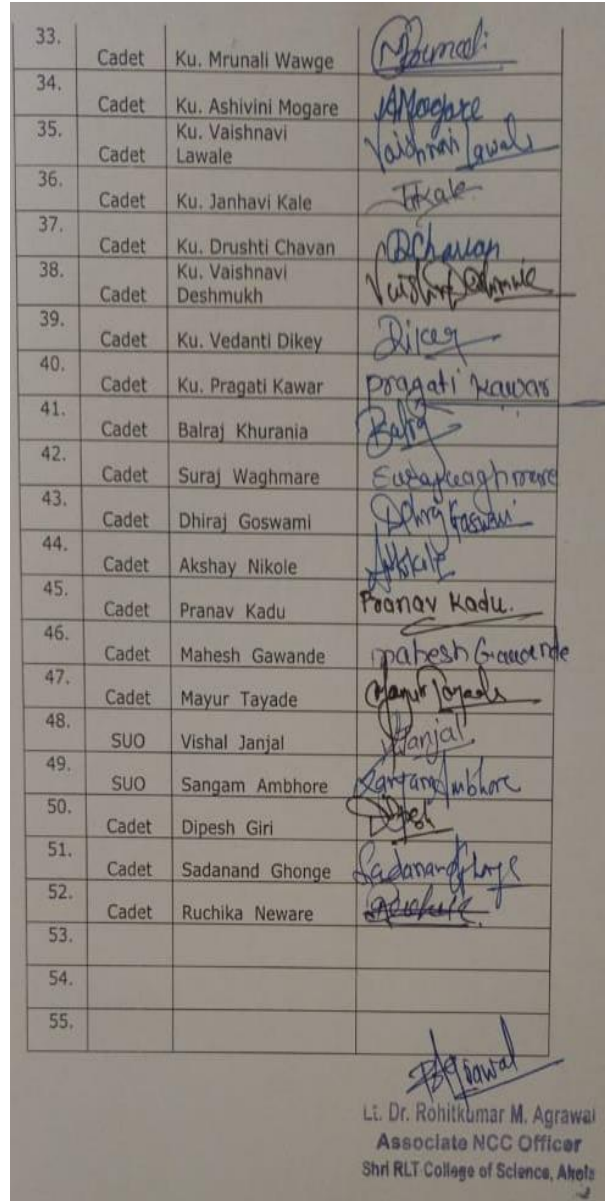 33. Cadet Ku. Mrunali Wawge
34. Cadet Ku. Ashivini Mogare AMogare
35. Cadet Ku. Vaishnavi
Lawale Vaishnavi Lawale
36. Cadet Ku. Janhavi Kale JKale
37. Cadet Ku. Drushti Chavan DChavan
38. Cadet Ku. Vaishnavi
Deshmukh
39. Cadet Ku. Vedanti Dikey Dikey
40. Cadet Ku. Pragati Kawar Pragati Kawar
41. Cadet Balraj Khurania
42. Cadet Suraj Waghmare Surajwaghmare
43. Cadet Dhiraj Goswami
44. Cadet Akshay Nikole
45. Cadet Pranav Kadu Pranav Kadu.
46. Cadet Mahesh Gawande Mahesh Gawande
47. Cadet Mayur Tayade Mayur Tayade
48. SUO Vishal Janjal Janjal
49. SUO Sangam Ambhore Sangam Ambhore
50. Cadet Dipesh Giri Dipesh
51. Cadet Sadanand Ghonge
52. Cadet Ruchika Neware
53.
54.
55.
Lt. Dr. Rohitkumar M. Agrawal
Associate NCC Officer
Shri RLT College of Science, Akola